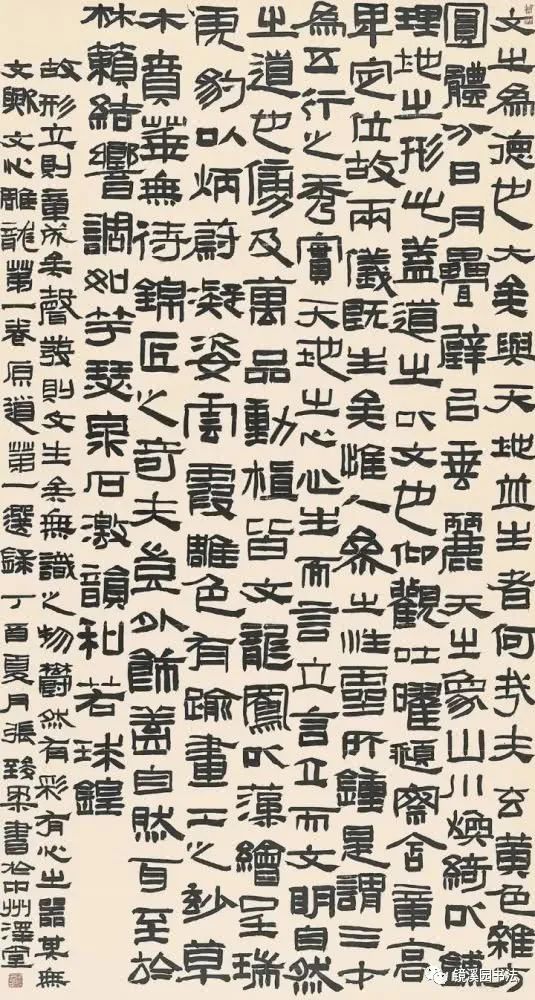 文之為德也大矣與天地並生者何哉夫玄黃色雜方
圓體分日月疊璧以垂麗天之象山川煥綺以鋪
理地之形此蓋道之文也仰觀吐曜頫察含章高
卑定位故兩儀既生矣惟人參之性靈所鍾是謂三才
為五行之秀實天地之心心生而言立言立而文明自然
之道也傍及萬品動植皆文龍鳳以藻繪呈瑞
虎豹以炳蔚凝姿雲霞雕色有踰畫工之妙草
木賁華無待錦匠之奇夫豈外飾蓋自然耳至於
林籟結響調如竽瑟泉石激韻和若球鍠
故形立則章成矣聲發則文生矣無識之物鬱然有彩有心之器其無
文歟文心雕龍第一卷原道第一選錄丁酉夏月張書於中州澤堂
镜溪园书法